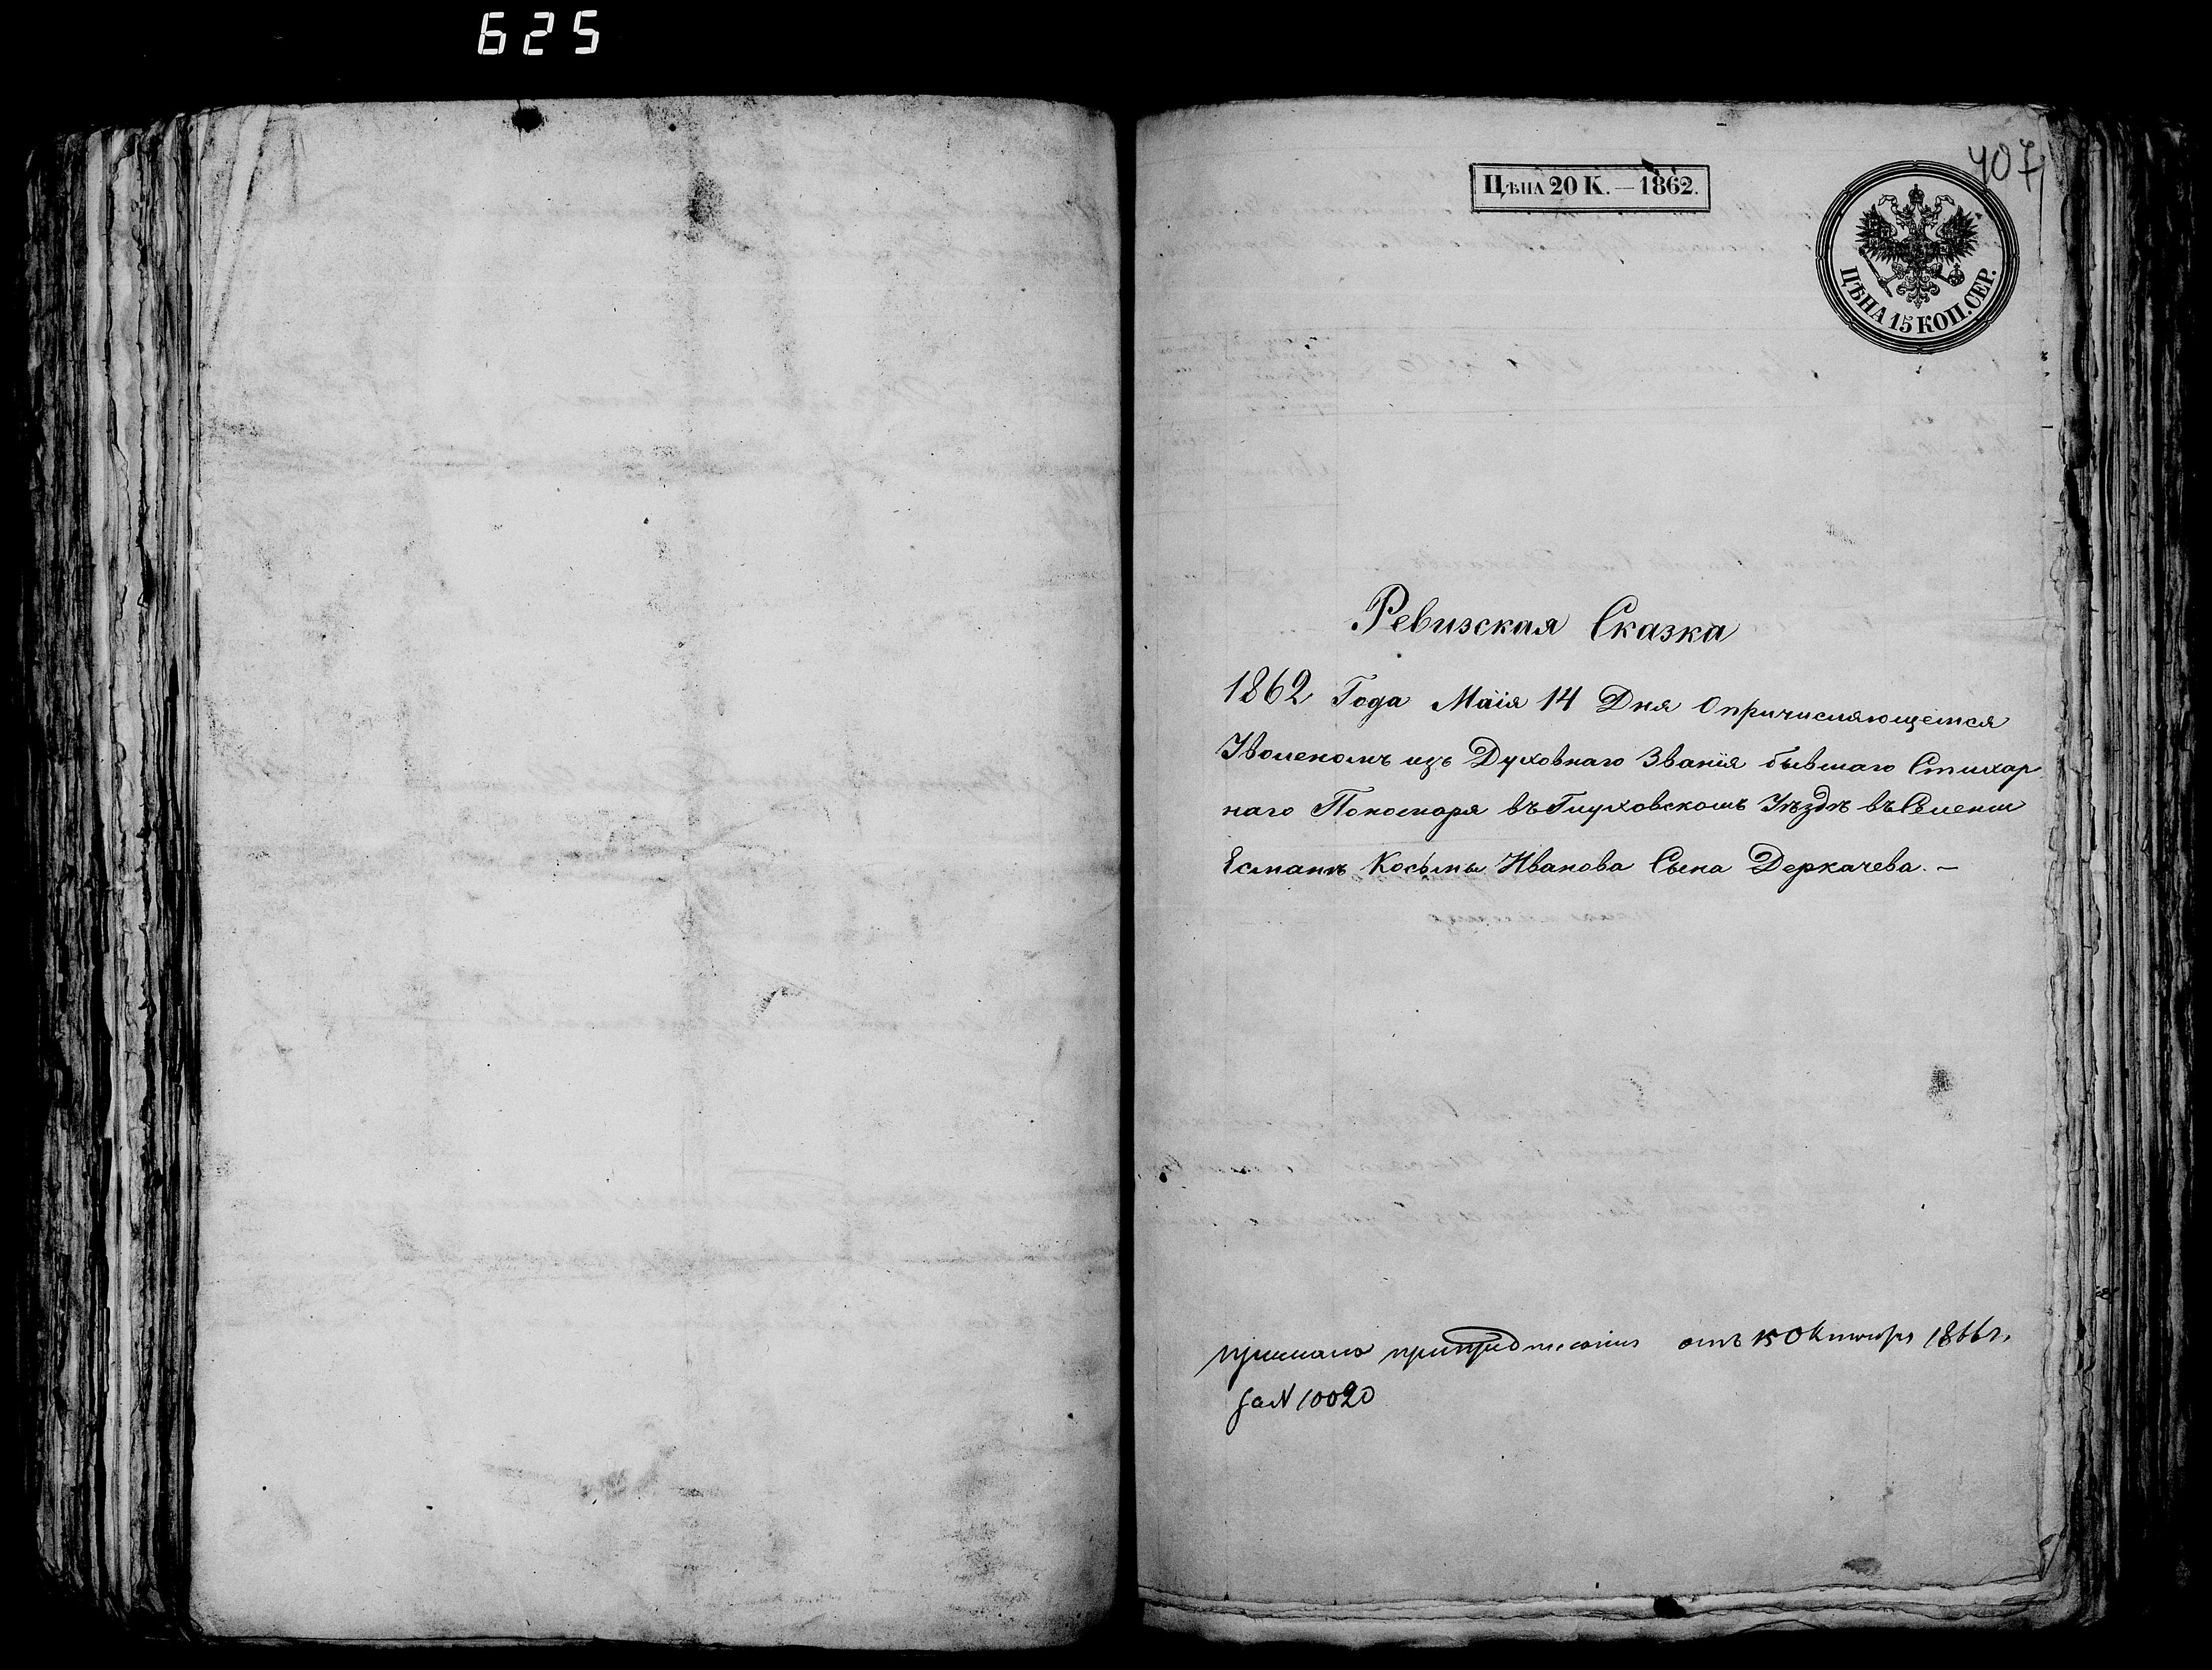 625
407
Цѣна 20 К. — 1862.
ЦѢНА 15 КОП. СЕР.
Ревизская Сказка
1862 Года Маія 14 Дня О причисляющемся
Уволеномъ изъ Духовнаго Званія бывшаго Стихар
наго Пономаря въ Глуховскомъ Уѣздѣ въ Селении
Есмани Косьмы Иванова Сына Деркачева. —
при предписании отъ 15 Октября 1866 г.
за N 10020